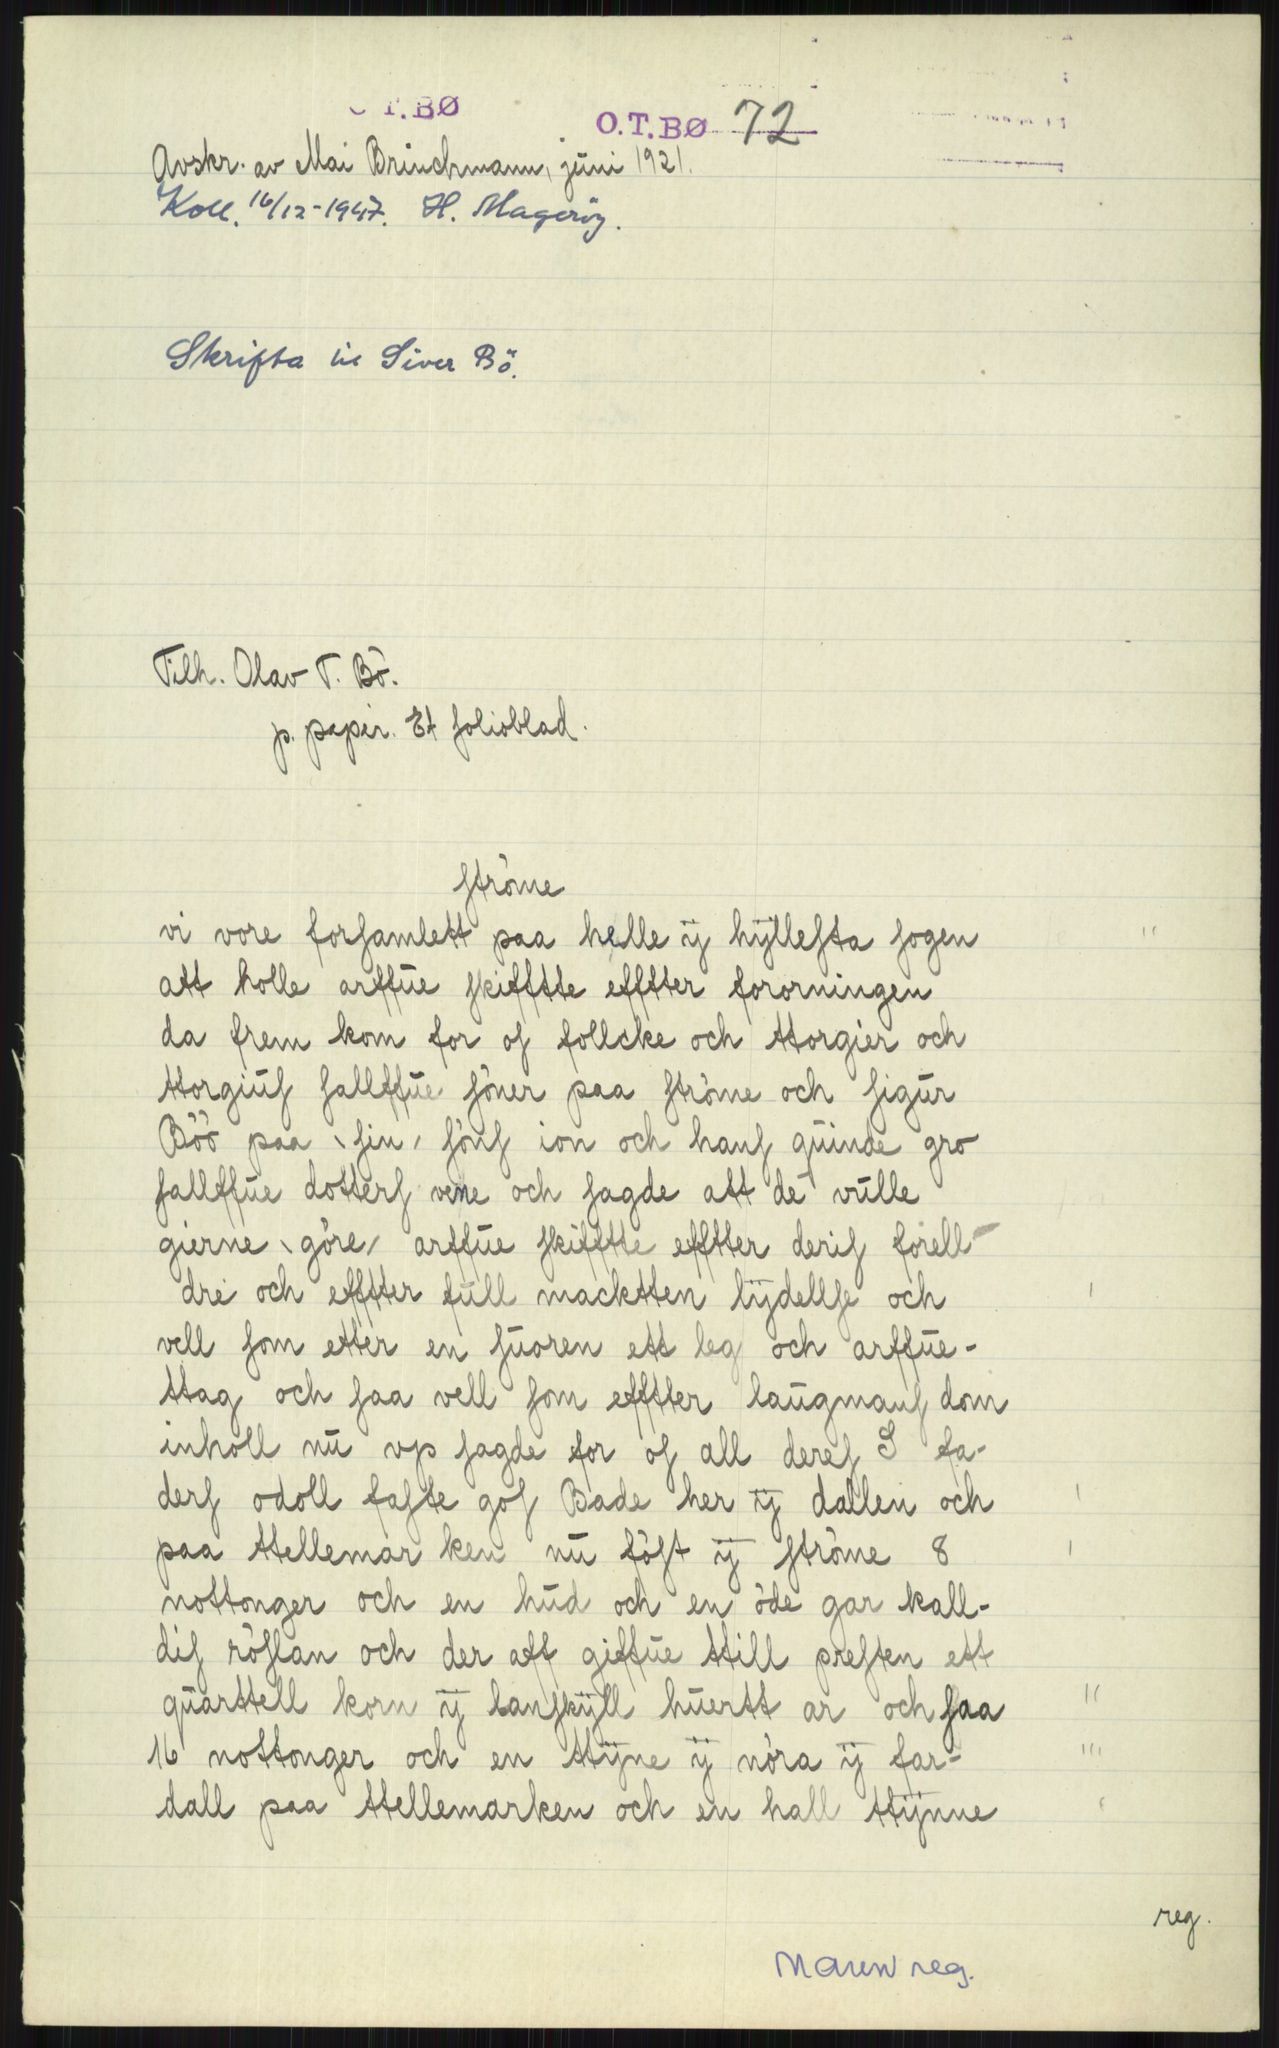 T.BØ
O.T.BØ 72
Avskr. av Mai Brinchmann, juni 1921.
Koll. 16/12-1947. H. Magerøy.
Skrifta til Siver Bö.
Tilh. Olav T. Bö.
p. papir. Et folioblad.
ströme
vi vore forsamlett paa helle ÿ hÿllesta sogen
att holle arffue skifftte efftter fororningen
da frem kom for os follcke och ttorgier och
ttorgius sallffue söner paa ströme och sigur
Böö paa \sin/ söns ion och hans quinde gro
sallffue dotters vene och sagde att de vulle
gierne \göre/ arffue skifftte efftter deris forell-
dre och efftter full macktten lÿdellse och
vell som etter en suoren ett leg och arffue-
ttag och saa vell som efftter laugmans dom
inholl nu vp sagde for os all deres S fa-
ders odoll faste gos Bade her ÿ dallen och
paa ttellemar ken nu föst ÿ ströme 8
nottonger och en hud och en öde gar kall-
dis röslan och der aff giffue ttill presten ett
quarttell korn ÿ lanskÿll huertt ar och saa
16 nottonger och en ttÿne ÿ nöra ÿ far-
dall paa ttellemarken och en hall ttÿnne
reg.
Navn reg.